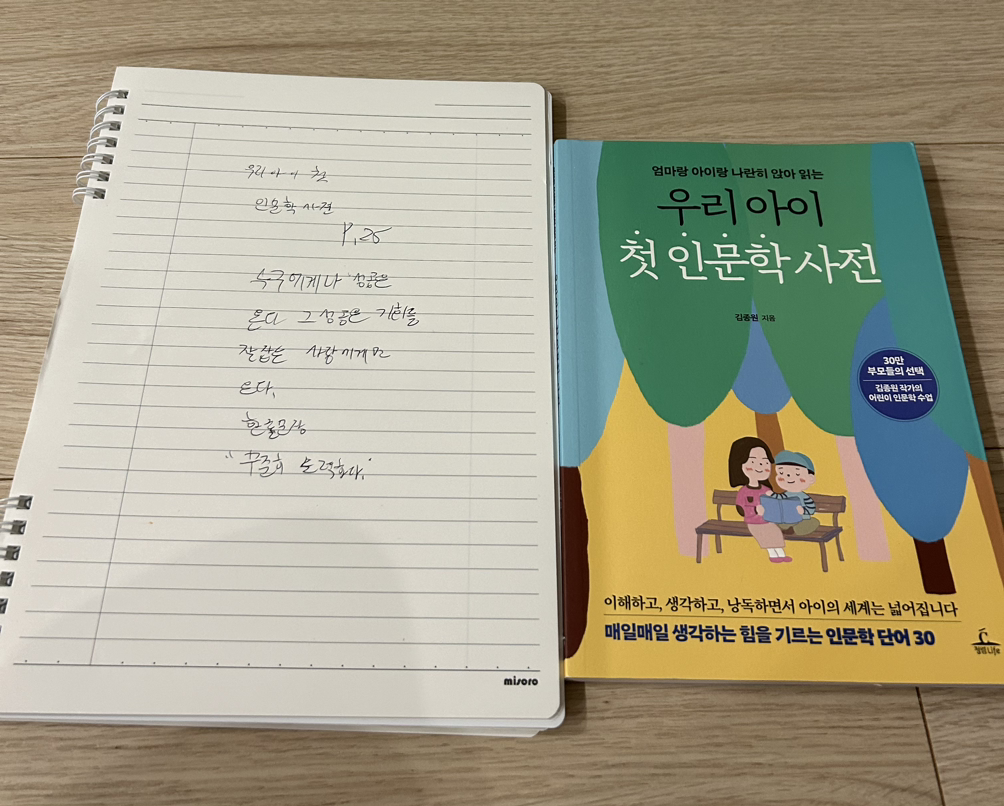 우리 아이 첫
인문학 사전
P.25
누구에게나 성공은
온다 그 성공은 기회를
잘 잡는 사람에게만
온다.
한 줄 문장
"꾸준히 노력하다."
misoro
엄마랑 아이랑 나란히 앉아 읽는
우리 아이
첫 인문학 사전
김종원 지음
30만
부모들의 선택
김종원 작가의
어린이 인문학 수업
이해하고, 생각하고, 낭독하면서 아이의 세계는 넓어집니다
매일매일 생각하는 힘을 기르는 인문학 단어 30
청림Life